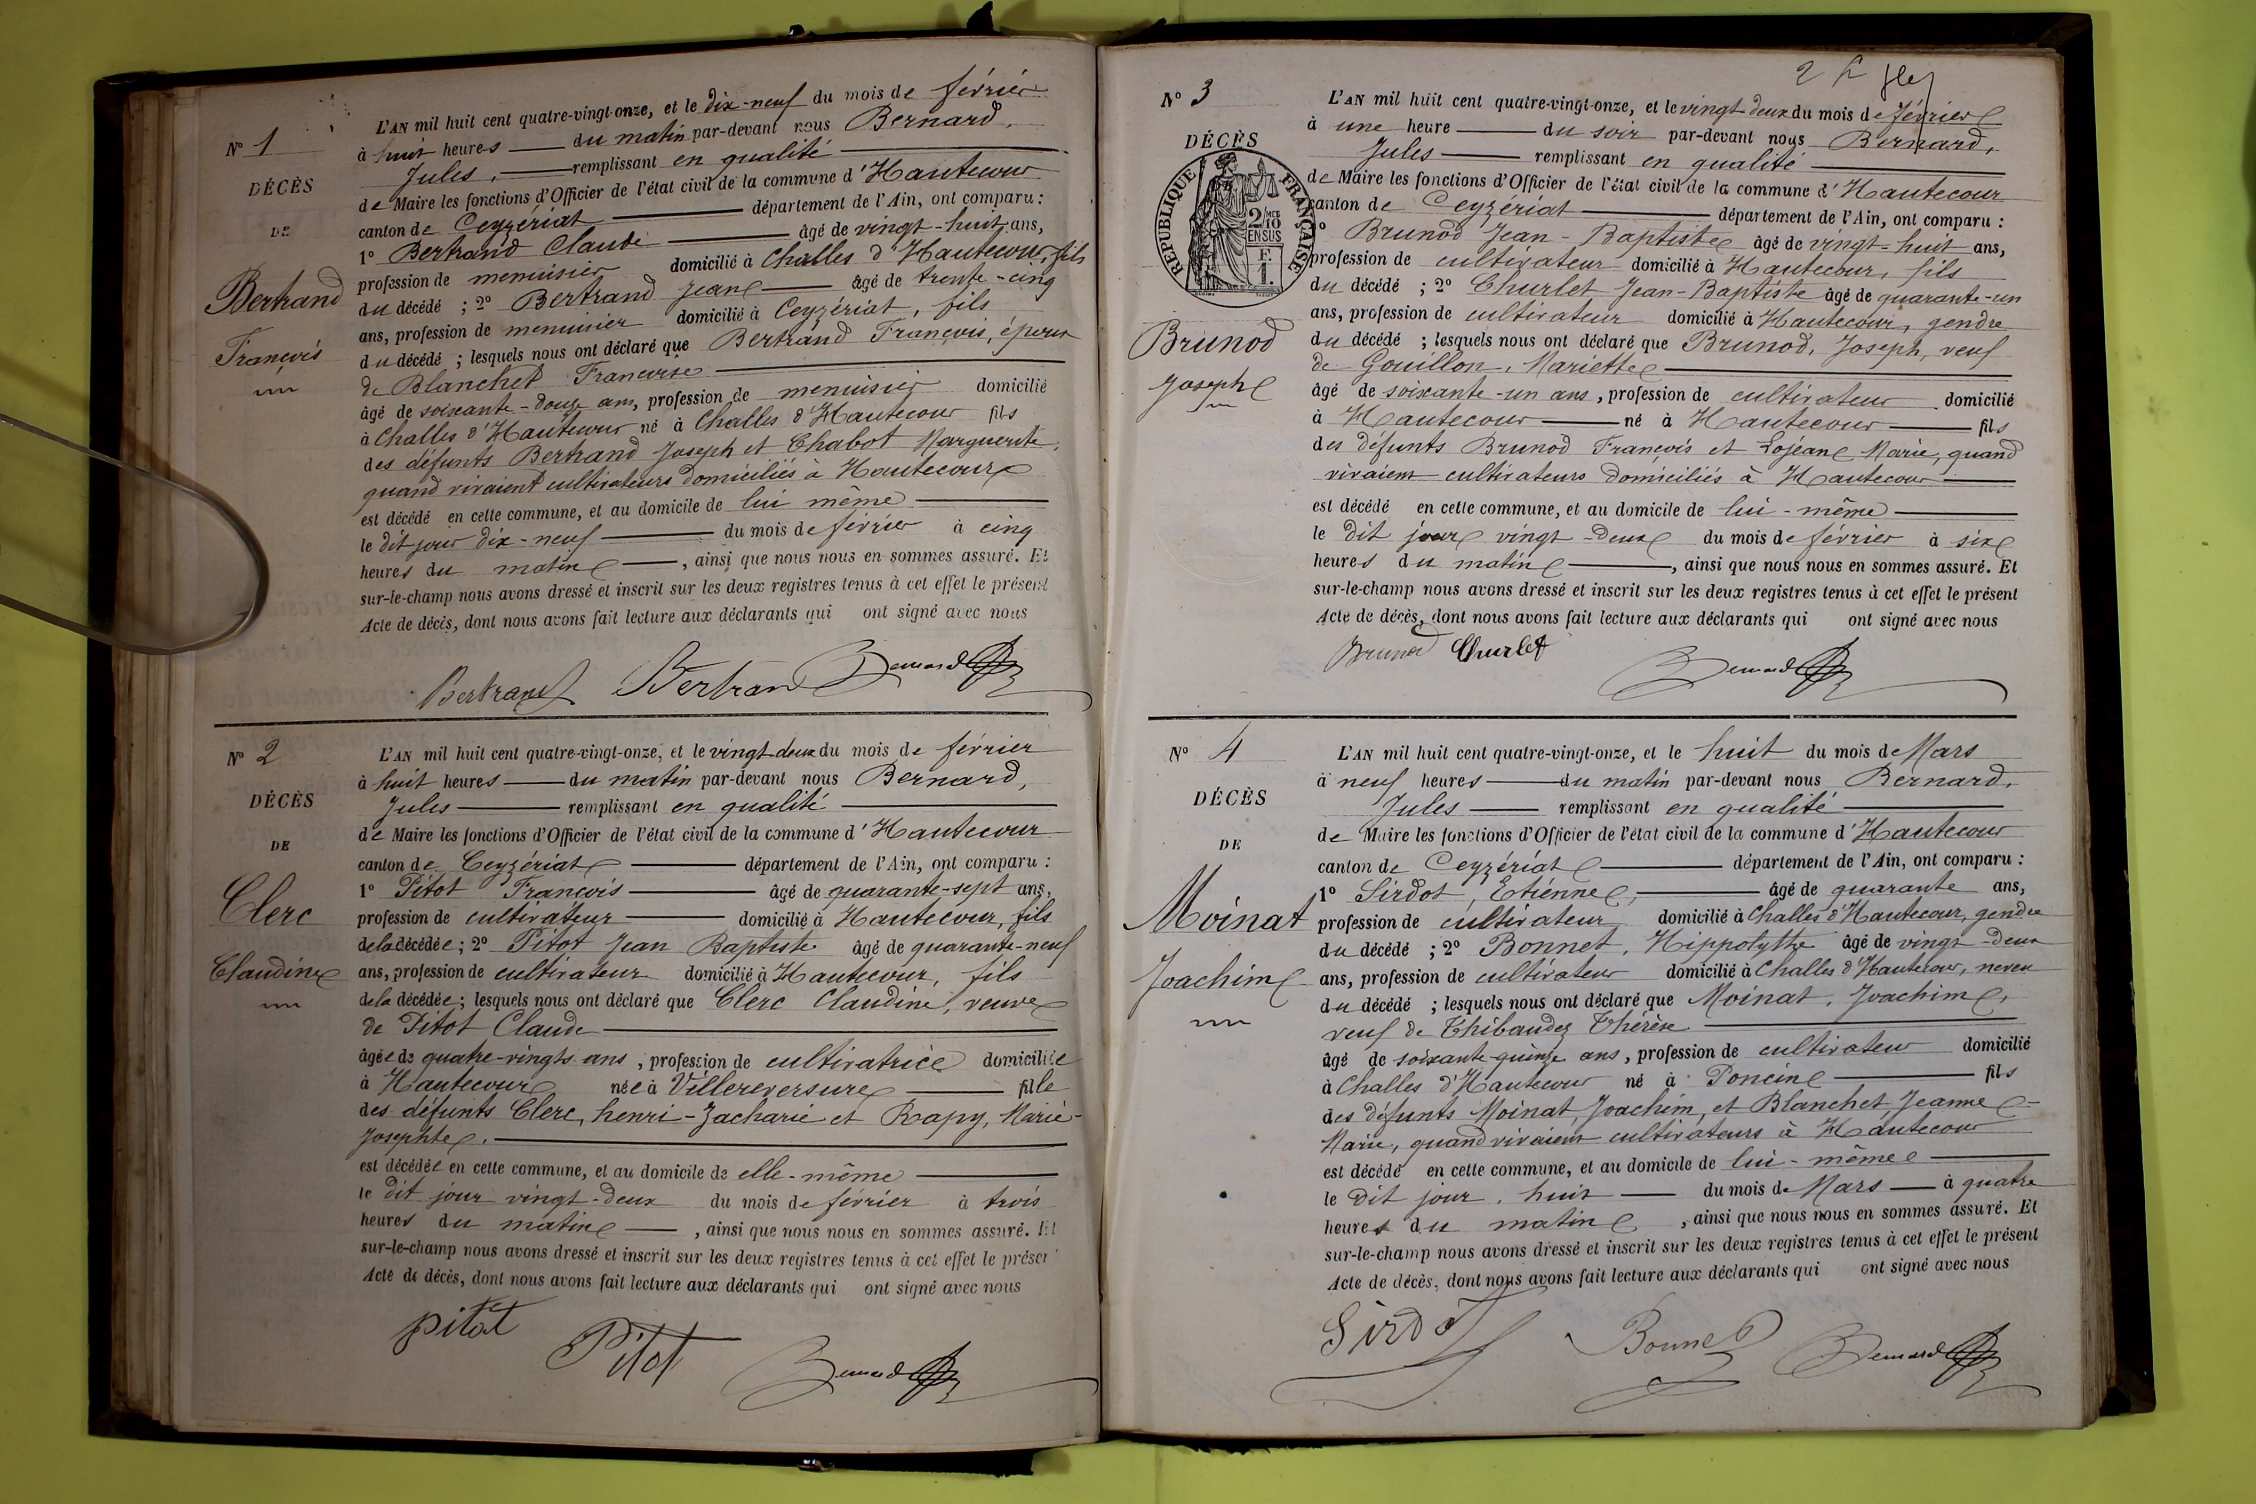 N° 1
DÉCÈS
DE
Bertrand
François
L'AN mil huit cent quatre-vingt-onze, et le dix-neuf du mois de février
à huit heures du matin par-devant nous Bernard,
Jules, remplissant en qualité
de Maire les fonctions d'Officier de l'état civil de la commune d'Hautecour
canton de Ceyzériat département de l'Ain, ont comparu :
1° Bertrand Claude âgé de vingt-huit ans,
profession de menuisier domicilié à Challes d'Hautecour, fils
du décédé ; 2° Bertrand Jean âgé de trente-cinq
ans, profession de menuisier domicilié à Ceyzériat, fils
du décédé ; lesquels nous ont déclaré que Bertrand François, époux
de Blanchet Françoise
âgé de soixante-douze ans, profession de menuisier domicilié
à Challes d'Hautecour né à Challes d'Hautecour fils
des défunts Bertrand Joseph et Chabot Marguerite,
quand vivaient cultivateurs domiciliés à Hautecour
est décédé en cette commune, et au domicile de lui même
le dit jour dix-neuf du mois de février à cinq
heures du matin, ainsi que nous nous en sommes assuré. Et
sur-le-champ nous avons dressé et inscrit sur les deux registres tenus à cet effet le présent
Acte de décès, dont nous avons fait lecture aux déclarants qui ont signé avec nous
Bertrand Bertrand Bernard
N° 2
DÉCÈS
DE
Clerc
Claudine
L'AN mil huit cent quatre-vingt-onze, et le vingt-deux du mois de février
à huit heures du matin par-devant nous Bernard,
Jules remplissant en qualité
de Maire les fonctions d'Officier de l'état civil de la commune d'Hautecour
canton de Ceyzériat département de l'Ain, ont comparu :
1° Pitot François âgé de quarante-sept ans,
profession de cultivateur domicilié à Hautecour, fils
de la décédée ; 2° Pitot Jean Baptiste âgé de quarante-neuf
ans, profession de cultivateur domicilié à Hautecour, fils
de la décédée ; lesquels nous ont déclaré que Clerc Claudine, veuve
de Pitot Claude
âgée de quatre-vingts ans, profession de cultivatrice domiciliée
à Hautecour née à Villereversure fille
des défunts Clerc, henri-Zacharie et Rapy, Marie-
Josephte.
est décédée en cette commune, et au domicile de elle-même
le dit jour vingt-deux du mois de février à trois
heures du matin, ainsi que nous nous en sommes assuré. Et
sur-le-champ nous avons dressé et inscrit sur les deux registres tenus à cet effet le présent
Acte de décès, dont nous avons fait lecture aux déclarants qui ont signé avec nous
pitot Pitot Bernard
N° 3
DÉCÈS
RÉPUBLIQUE FRANÇAISE
2/10 EN SUS
Brunod
Joseph
L'AN mil huit cent quatre-vingt-onze, et le vingt deux du mois de février
à une heure du soir par-devant nous Bernard,
Jules remplissant en qualité
de Maire les fonctions d'Officier de l'état civil de la commune d'Hautecour
canton de Ceyzériat département de l'Ain, ont comparu :
1° Brunod Jean-Baptiste âgé de vingt-huit ans,
profession de cultivateur domicilié à Hautecour, fils
du décédé ; 2° Churlet Jean-Baptiste âgé de quarante-un
ans, profession de cultivateur domicilié à Hautecour, gendre
du décédé ; lesquels nous ont déclaré que Brunod, Joseph, veuf
de Gouillon, Mariette
âgé de soixante-un ans, profession de cultivateur domicilié
à Hautecour né à Hautecour fils
des défunts Brunod François et Lojean Marie, quand
vivaient cultivateurs domiciliés à Hautecour
est décédé en cette commune, et au domicile de lui-même
le dit jour vingt-deux du mois de février à six
heures du matin, ainsi que nous nous en sommes assuré. Et
sur-le-champ nous avons dressé et inscrit sur les deux registres tenus à cet effet le présent
Acte de décès, dont nous avons fait lecture aux déclarants qui ont signé avec nous
Brunod Churlet Bernard
N° 4
DÉCÈS
DE
Moinat
Joachim
L'AN mil huit cent quatre-vingt-onze, et le huit du mois de Mars
à neuf heures du matin par-devant nous Bernard,
Jules remplissant en qualité
de Maire les fonctions d'Officier de l'état civil de la commune d'Hautecour
canton de Ceyzériat département de l'Ain, ont comparu :
1° Sirdot, Etienne, âgé de quarante ans,
profession de cultivateur domicilié à Challes d'Hautecour, gendre
du décédé ; 2° Bonnet, Hippolythe âgé de vingt-deux
ans, profession de cultivateur domicilié à Challes d'Hautecour, neveu
du décédé ; lesquels nous ont déclaré que Moinat, Joachim,
veuf de Thibaudez Thérèse
âgé de soixante-quinze ans, profession de cultivateur domicilié
à Challes d'Hautecour né à Poncin fils
des défunts Moinat Joachim, et Blanchet Jeanne-
Marie, quand vivaient cultivateurs à Hautecour
est décédé en cette commune, et au domicile de lui-même
le dit jour, huit du mois de Mars à quatre
heures du matin, ainsi que nous nous en sommes assuré. Et
sur-le-champ nous avons dressé et inscrit sur les deux registres tenus à cet effet le présent
Acte de décès, dont nous avons fait lecture aux déclarants qui ont signé avec nous
Sirdot Bonnet Bernard